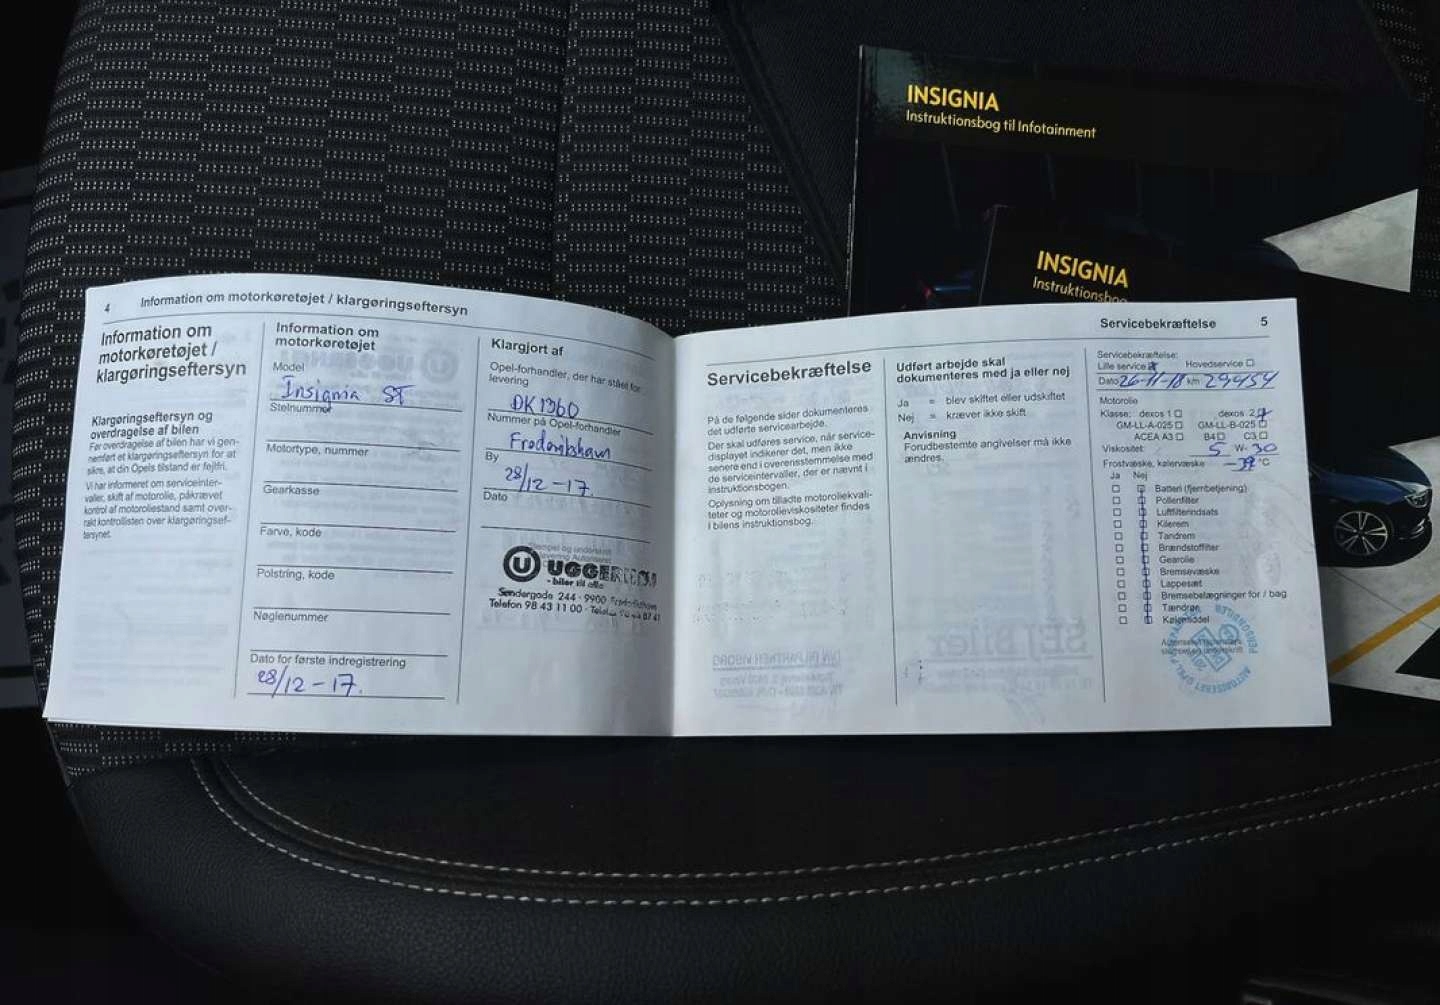 INSIGNIA
Instruktionsbog til Infotainment
INSIGNIA
Instruktionsbog
4 Information om motorkøretøjet / klargøringseftersyn
Information om
motorkøretøjet /
klargøringseftersyn
Klargøringseftersyn og
overdragelse af bilen
Før overdragelse af bilen har vi gen-
nemført et klargøringseftersyn for at
sikre, at din Opels tilstand er fejlfri.
Vi har informeret om serviceinter-
valler, skift af motorolie, påkrævet
kontrol af motoroliestand samt over-
rakt kontrollisten over klargøringsef-
tersynet.
Information om
motorkøretøjet
Model
Insignia ST
Stelnummer
Motortype, nummer
Gearkasse
Farve, kode
Polstring, kode
Nøglenummer
Dato for første indregistrering
28/12-17.
Klargjort af
Opel-forhandler, der har stået for
levering
DK1360
Nummer på Opel-forhandler
Frederikshavn
By
28/12-17.
Dato
UGGERHØJ
- biler til alle
Søndergade 244 · 9900 Frederikshavn
Telefon 98 43 11 00 ·
Servicebekræftelse 5
Servicebekræftelse
På de følgende sider dokumenteres
det udførte servicearbejde.
Der skal udføres service, når service-
displayet indikerer det, men ikke
senere end i overensstemmelse med
de serviceintervaller, der er nævnt i
instruktionsbogen.
Oplysning om tilladte motoroliekvali-
teter og motorolieviskositeter findes
i bilens instruktionsbog.
Udført arbejde skal
dokumenteres med ja eller nej
Ja = blev skiftet eller udskiftet
Nej = kræver ikke skift
Anvisning
Forudbestemte angivelser må ikke
ændres.
Servicebekræftelse:
Lille service Hovedservice
Dato 26-11-18 km 29454
Motorolie
Klasse: dexos 1 dexos 2
GM-LL-A-025 GM-LL-B-025
ACEA A3 B4 C3
Viskositet: 5 W- 30
Frostvæske, kølervæske °C
Ja Nej
Batteri (fjernbetjening)
Pollenfilter
Luftfilterindsats
Kilerem
Tandrem
Brændstoffilter
Gearolie
Bremsevæske
Lappesæt
Bremsebelægninger for / bag
Tændrør
Kølemiddel